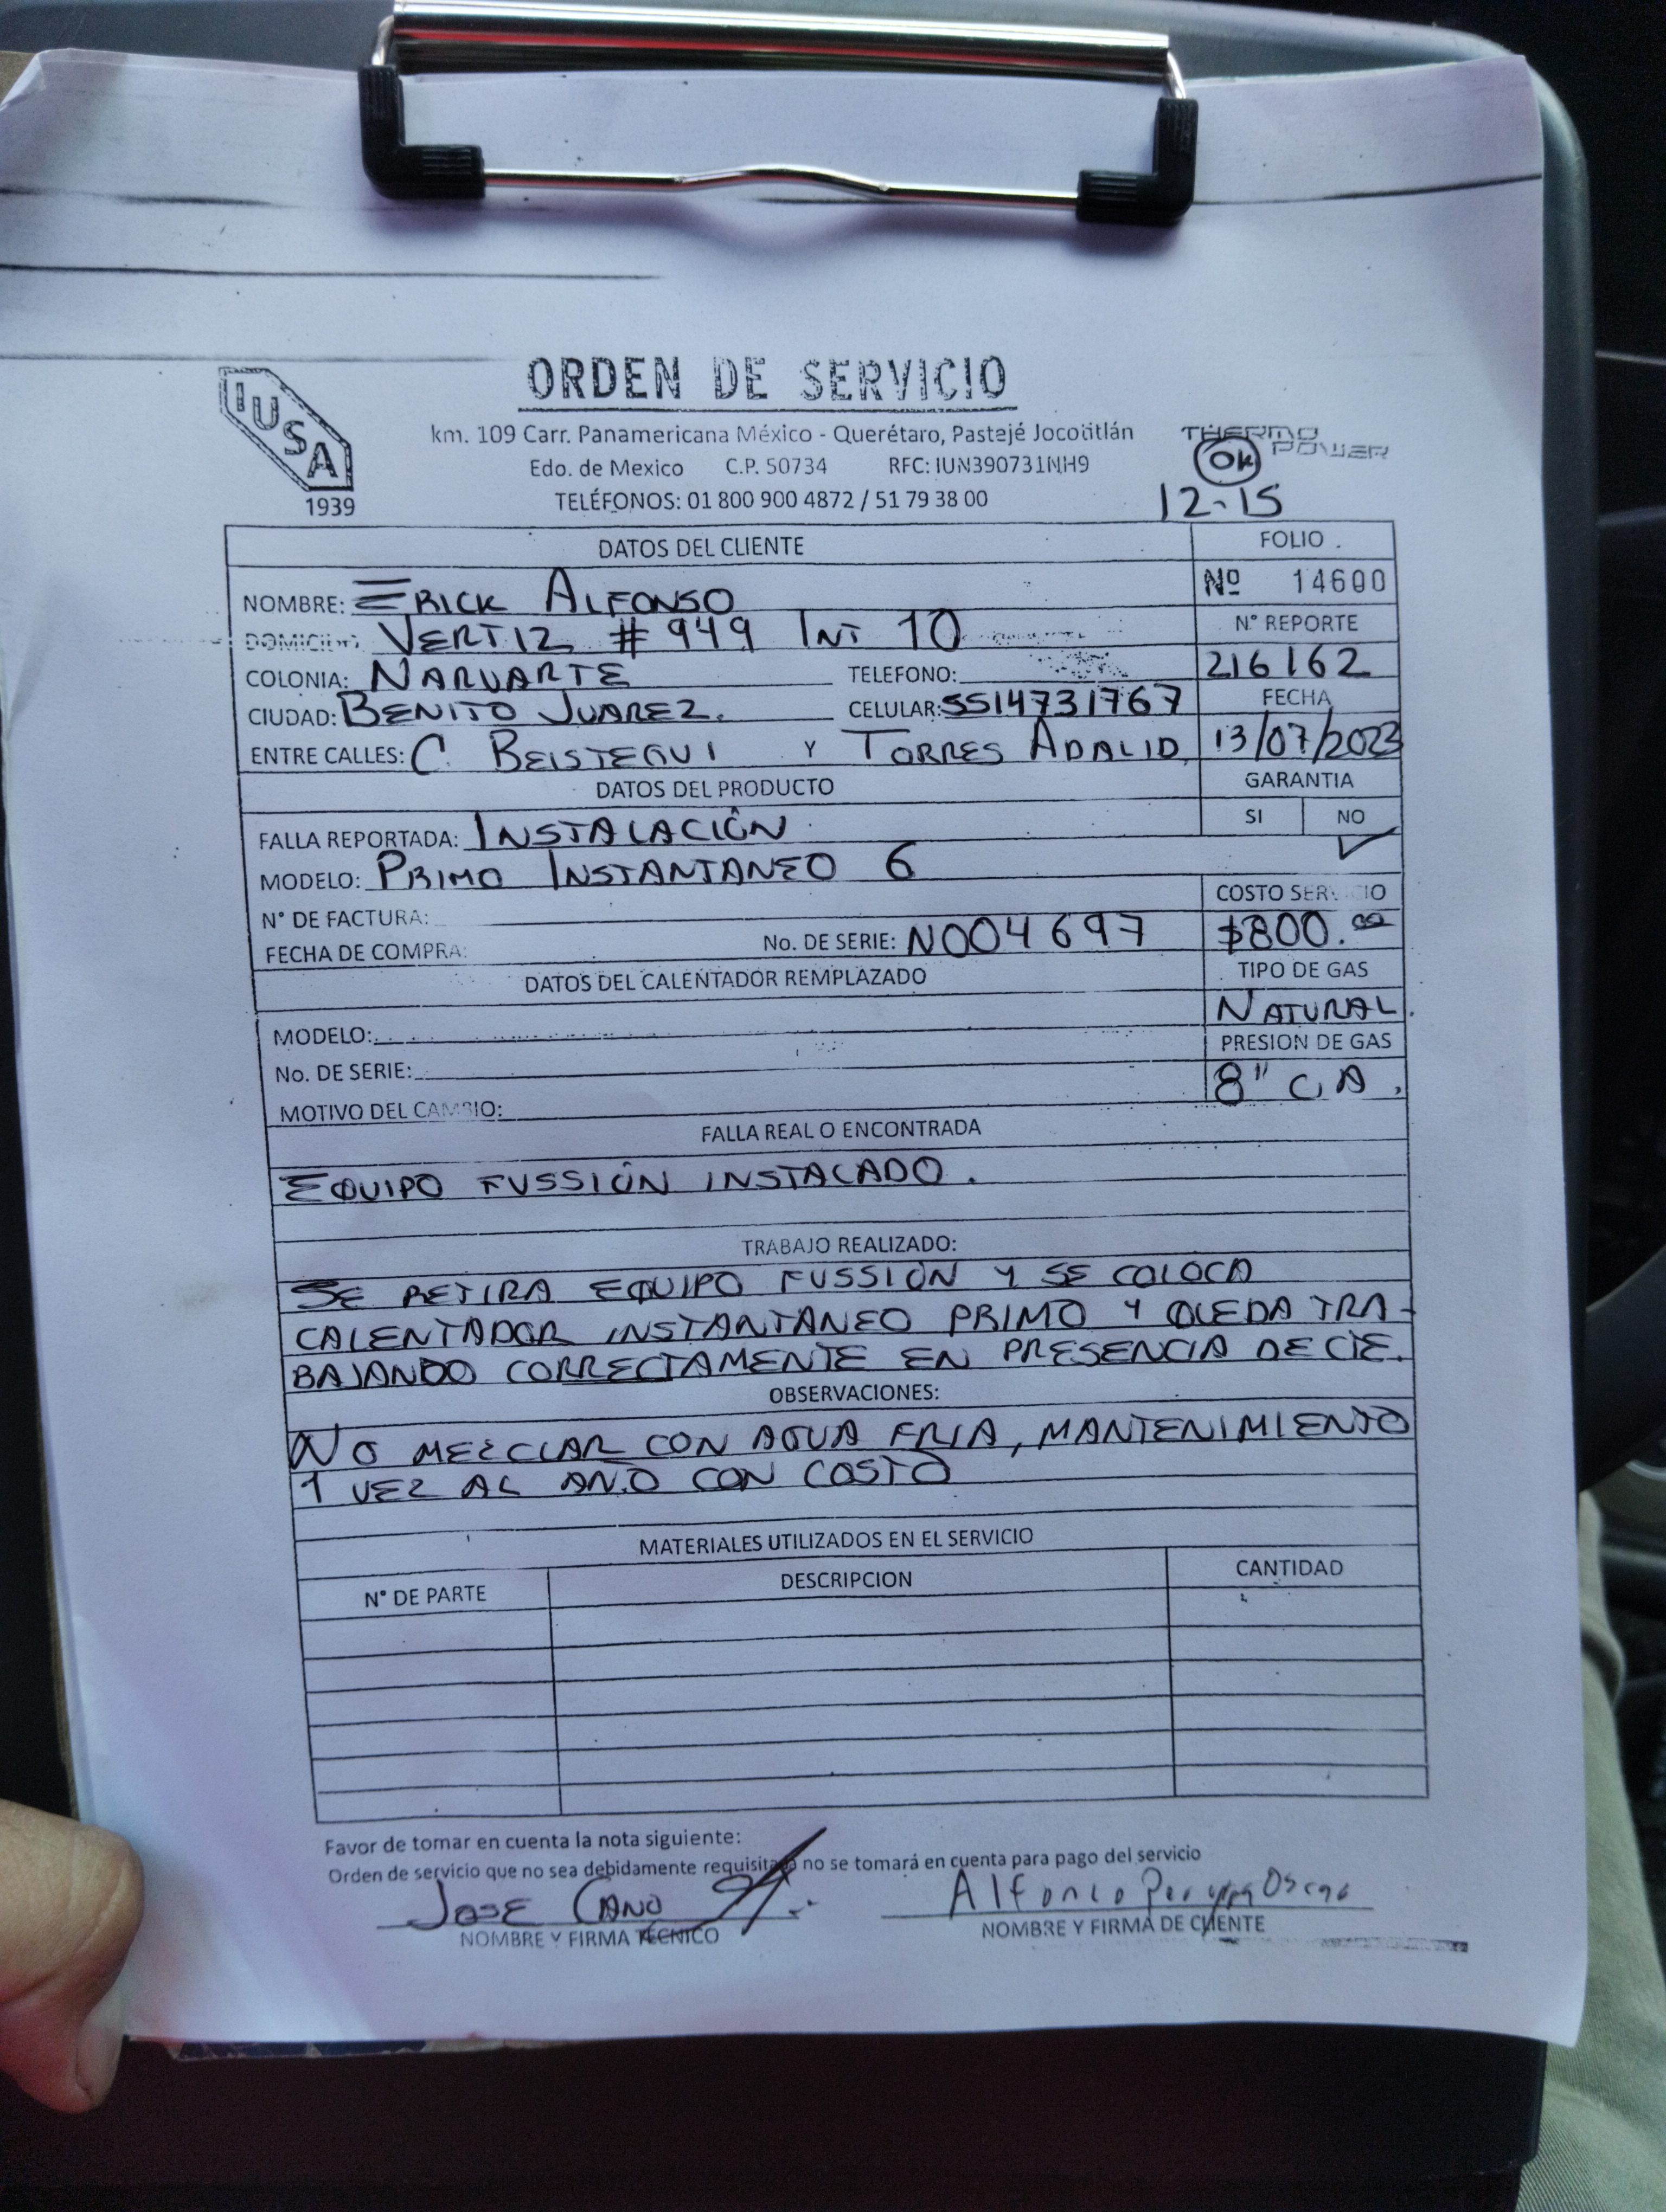 ORDEN DE SERVICIO
IUSA
1939
km. 109 Carr. Panamericana México - Querétaro, Pastejé Jocotitlán
Edo. de Mexico C.P. 50734 RFC: IUN390731NH9
TELÉFONOS: 01 800 900 4872 / 51 79 38 00
THERMO POWER
OK
12-15
DATOS DEL CLIENTE
FOLIO
Nº 14600
NOMBRE: ERICK ALFONSO
DOMICILIO: VERTIZ #949 INT 10
N° REPORTE
216162
COLONIA: NARVARTE TELEFONO:
CIUDAD: BENITO JUAREZ. CELULAR: 5514731767
FECHA
13/07/2023
ENTRE CALLES: C. BEISTEGUI Y TORRES ADALID
DATOS DEL PRODUCTO
GARANTIA
SI NO
✓
FALLA REPORTADA: INSTALACIÓN
MODELO: PRIMO INSTANTANEO 6
N° DE FACTURA:
COSTO SERVICIO
$800.00
FECHA DE COMPRA: No. DE SERIE: N004697
DATOS DEL CALENTADOR REMPLAZADO
TIPO DE GAS
NATURAL.
MODELO:
PRESION DE GAS
8" C.A.
No. DE SERIE:
MOTIVO DEL CAMBIO:
FALLA REAL O ENCONTRADA
EQUIPO FUSSIÓN INSTALADO.
TRABAJO REALIZADO:
SE RETIRA EQUIPO FUSSIÓN Y SE COLOCA
CALENTADOR INSTANTANEO PRIMO Y QUEDA TRA-
BAJANDO CORRECTAMENTE EN PRESENCIA DE CTE.
OBSERVACIONES:
NO MEZCLAR CON AGUA FRIA, MANTENIMIENTO
1 VEZ AL AÑO CON COSTO
MATERIALES UTILIZADOS EN EL SERVICIO
N° DE PARTE DESCRIPCION CANTIDAD
Favor de tomar en cuenta la nota siguiente:
Orden de servicio que no sea debidamente requisitada no se tomará en cuenta para pago del servicio
JOSE CANO
NOMBRE Y FIRMA TÉCNICO
Alfonso
NOMBRE Y FIRMA DE CLIENTE